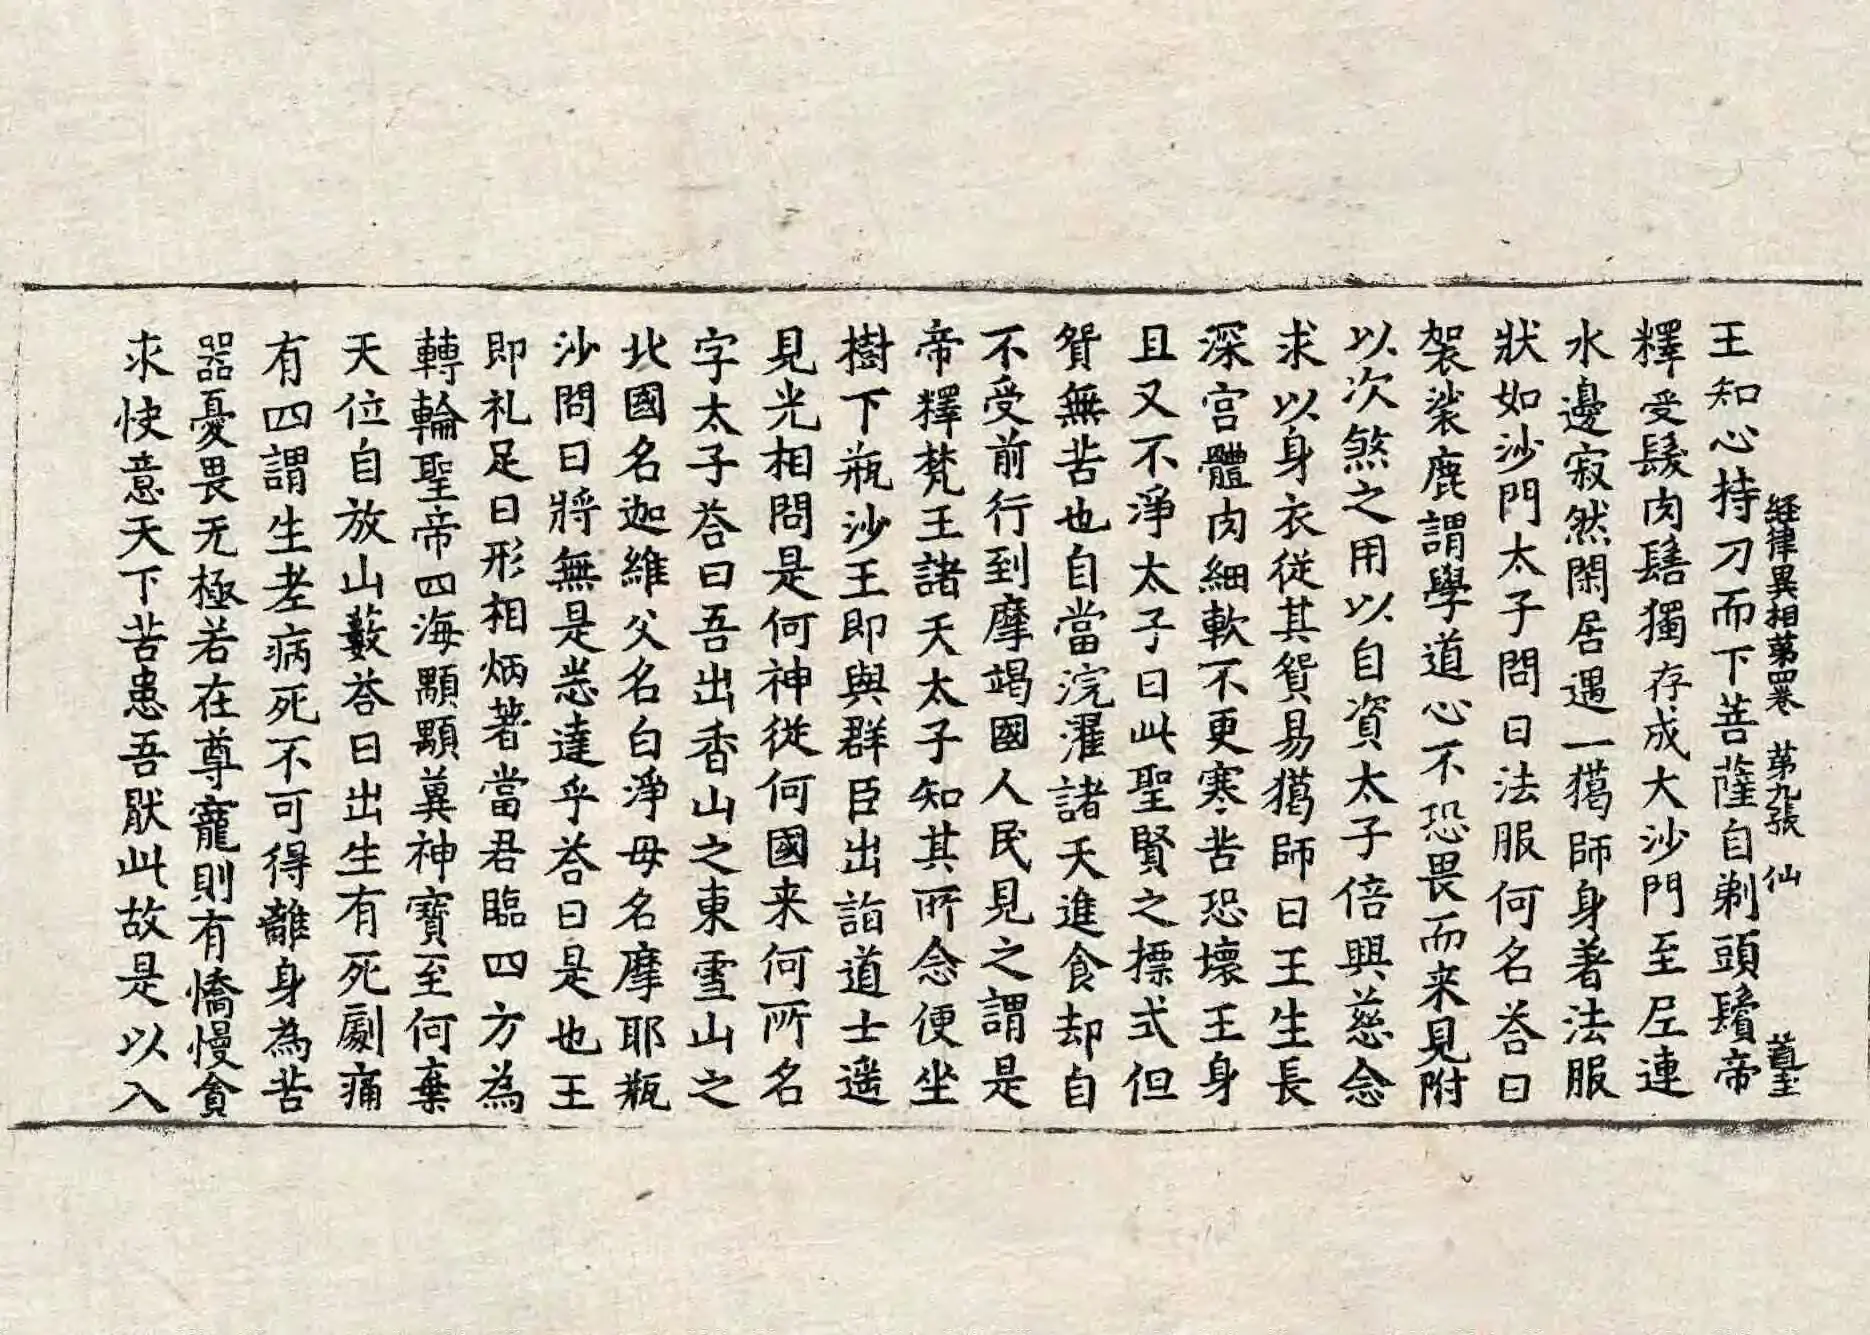 王知心持刀而下菩薩自剃頭鬚帝
経律異相苐四巻 苐九張 仙
釋受髮肉髻獨存成大沙門至尼連
水邊寂然閑居遇一獦師身著法服
狀如沙門太子問曰法服何名荅曰
袈裟鹿謂學道心不恐畏而来見附
以次煞之用以自資太子倍興慈念
求以身衣従其貿易獦師曰王生長
深宫體肉細軟不更寒苦恐壞王身
且又不淨太子曰此聖賢之摽式但
貿無苦也自當浣濯諸天進食却自
不受前行到摩竭國人民見之謂是
帝釋梵王諸天太子知其所念便坐
樹下瓶沙王即與群臣出詣道士遥
見光相問是何神従何國来何所名
字太子荅曰吾出香山之東雪山之
北國名迦維父名白淨母名摩耶瓶
沙問曰將無是悉達乎荅曰是也王
即礼足曰形相炳著當君臨四方為
轉輪聖帝四海顒顒冀神寶至何棄
天位自放山藪荅曰出生有死劇痛
有四謂生老病死不可得離身為苦
器憂畏无極若在尊寵則有憍慢貪
求快意天下苦患吾猒此故是以入